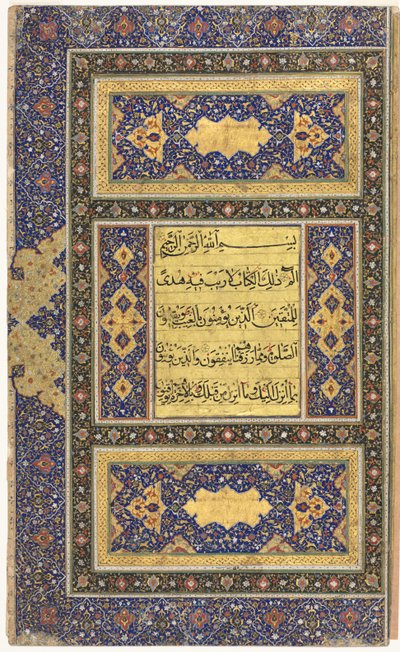 بِسْمِ اللَّهِ الرَّحْمٰنِ الرَّحِيمِ
الم ذٰلِكَ الْكِتَابُ لَا رَيْبَ فِيهِ هُدًى
لِلْمُتَّقِينَ الَّذِينَ يُؤْمِنُونَ بِالْغَيْبِ وَيُقِيمُونَ
الصَّلٰوةَ وَمِمَّا رَزَقْنَاهُمْ يُنْفِقُونَ وَالَّذِينَ يُؤْمِنُونَ
بِمَا أُنْزِلَ إِلَيْكَ وَمَا أُنْزِلَ مِنْ قَبْلِكَ وَبِالْآخِرَةِ هُمْ يُوقِنُونَ